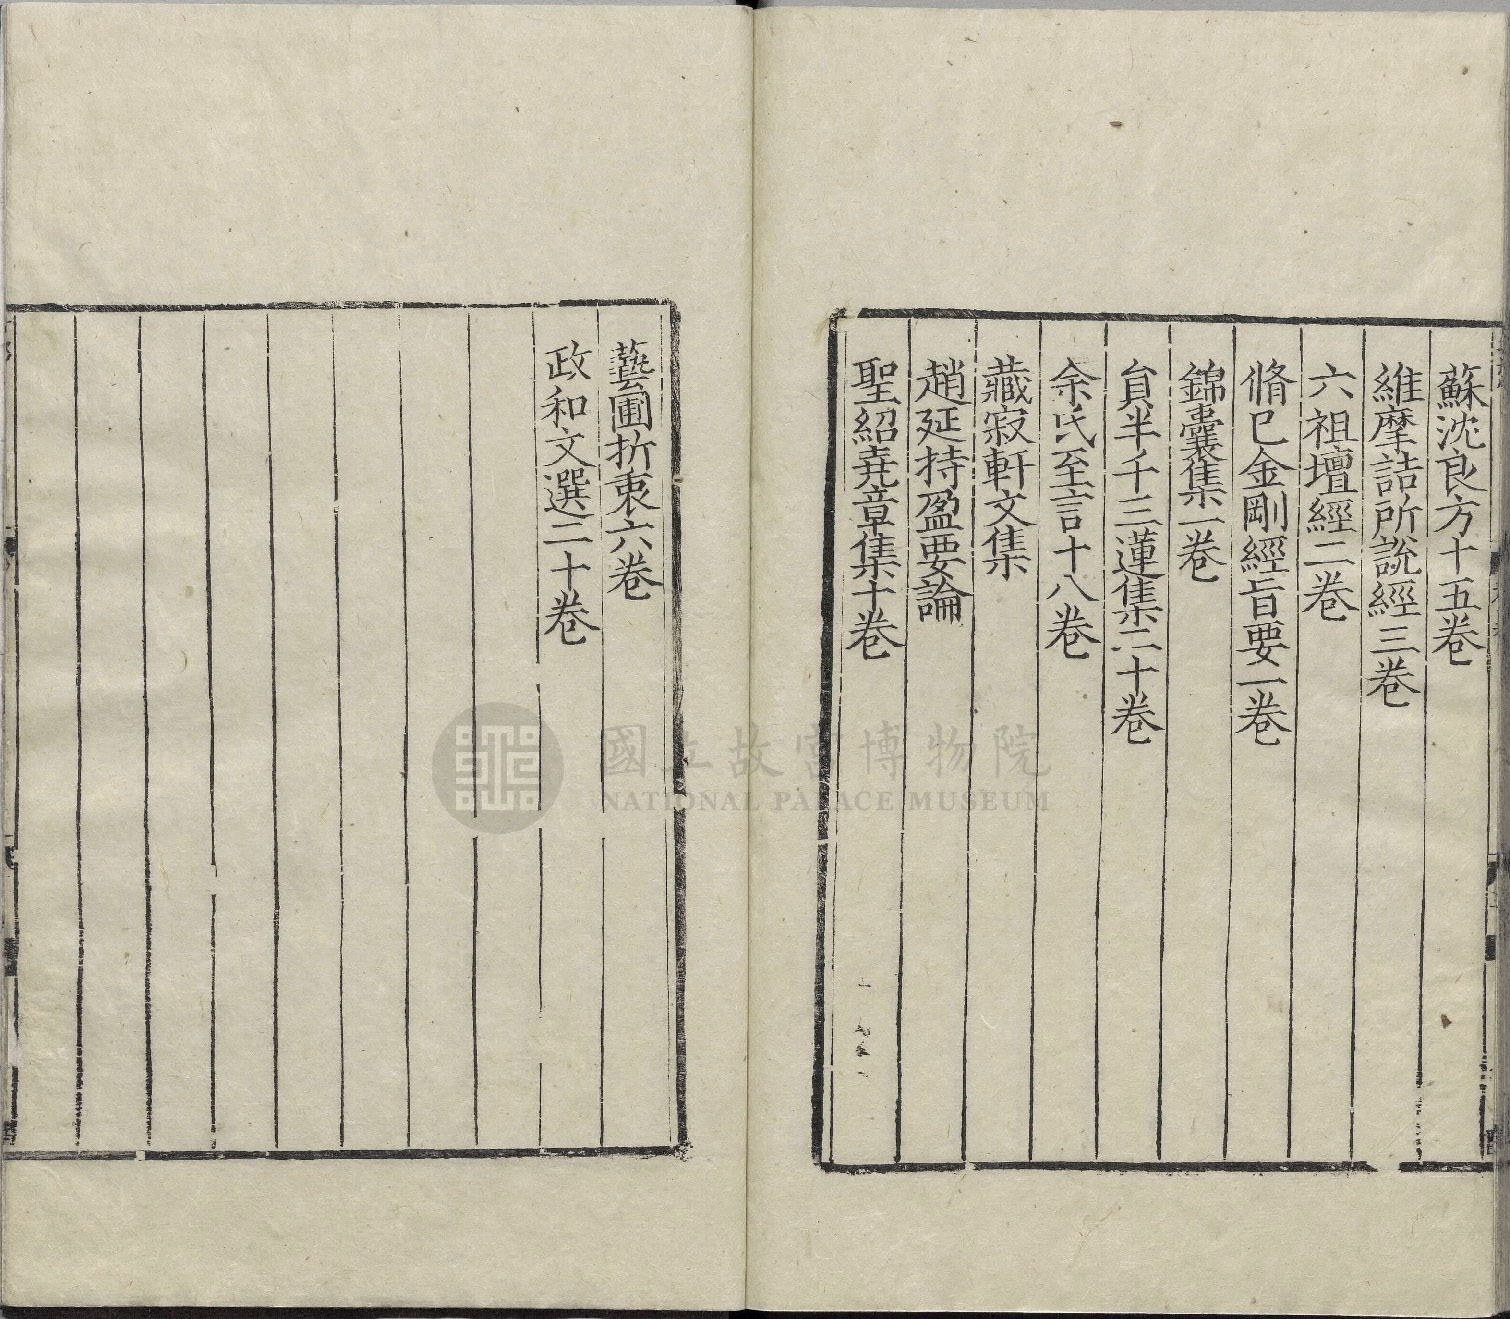 蘇沈良方十五卷
維摩詰所說經三卷
六祖壇經二卷
脩已金剛經旨要一卷
錦囊集一卷
貟半千三蓮集二十卷
余氏至言十八卷
藏寂軒文集
趙延持盈要論
聖紹堯章集十卷
藝圃折衷六卷
政和文選二十卷
國立故宮博物院
NATIONAL PALACE MUSEUM